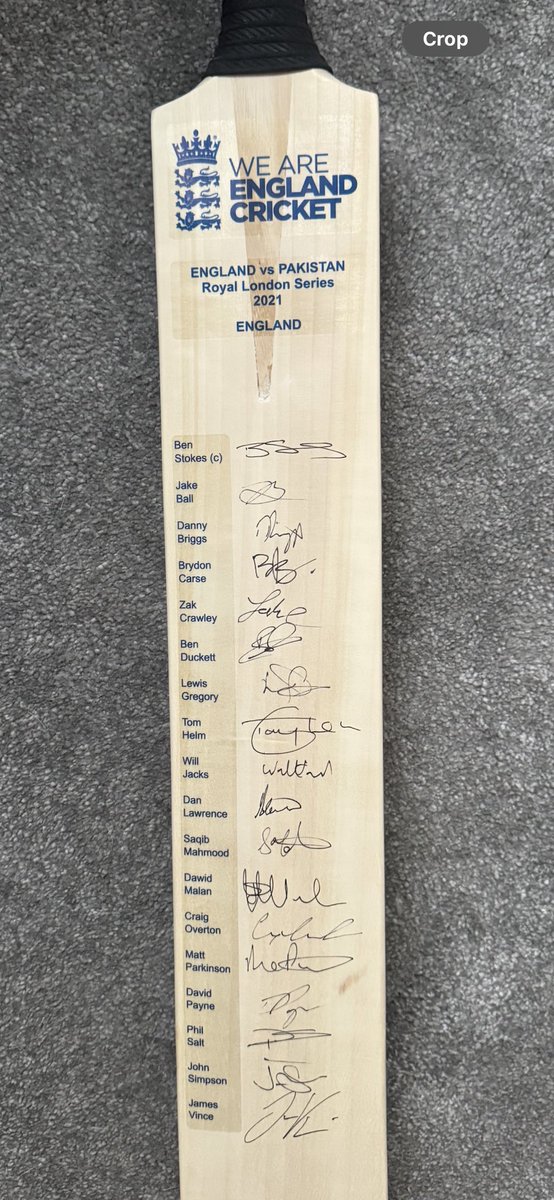 Crop
WE ARE
ENGLAND
CRICKET
ENGLAND vs PAKISTAN
Royal London Series
2021
ENGLAND
Ben
Stokes (c)
Jake
Ball
Danny
Briggs
Brydon
Carse
Zak
Crawley
Ben
Duckett
Lewis
Gregory
Tom
Helm
Will
Jacks
Dan
Lawrence
Saqib
Mahmood
Dawid
Malan
Craig
Overton
Matt
Parkinson
David
Payne
Phil
Salt
John
Simpson
James
Vince